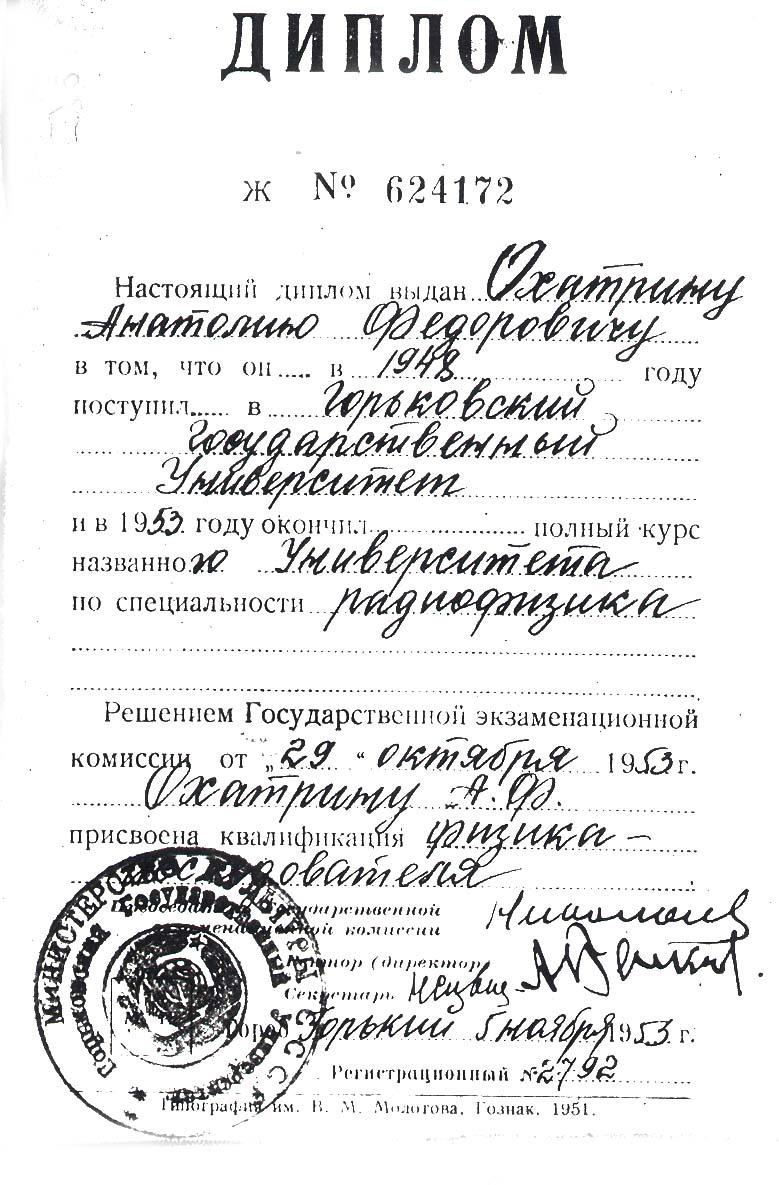 ДИПЛОМ
Ж № 624172
Настоящий диплом выдан Охатрину
Анатолию Федоровичу
в том, что он в 1948 году
поступил в Горьковский
Государственный
Университет
и в 1953 году окончил полный курс
названного Университета
по специальности радиофизика
Решением Государственной экзаменационной
комиссии от „29“ октября 1953 г.
Охатрину А.Ф.
присвоена квалификация физика-
исследователя
Председатель Государственной
экзаменационной комиссии
Ректор (директор)
Секретарь
Город Горький 5 ноября 1953 г.
Регистрационный № 2792
Типография им. В. М. Молотова, Гознак. 1951.
МИНИСТЕРСТВО КУЛЬТУРЫ СССР
Горьковский государственный университет